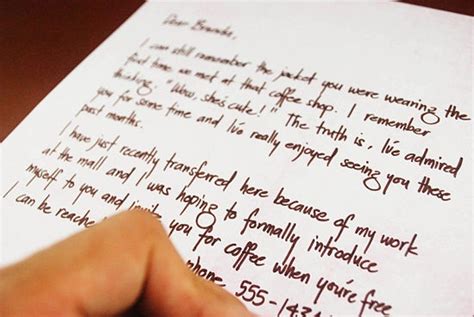 Dear Brande,
I can still remember the jacket you were wearing the
first time we met at that coffee shop. I remember
thinking: "Wow, she's cute!" The truth is, I've admired
you for some time and I've really enjoyed seeing you these
past months.
I have just recently transferred here because of my work
at the mall and I was hoping to formally introduce
myself to you and invite you for coffee when you're free
I can be reache phone 555-1434